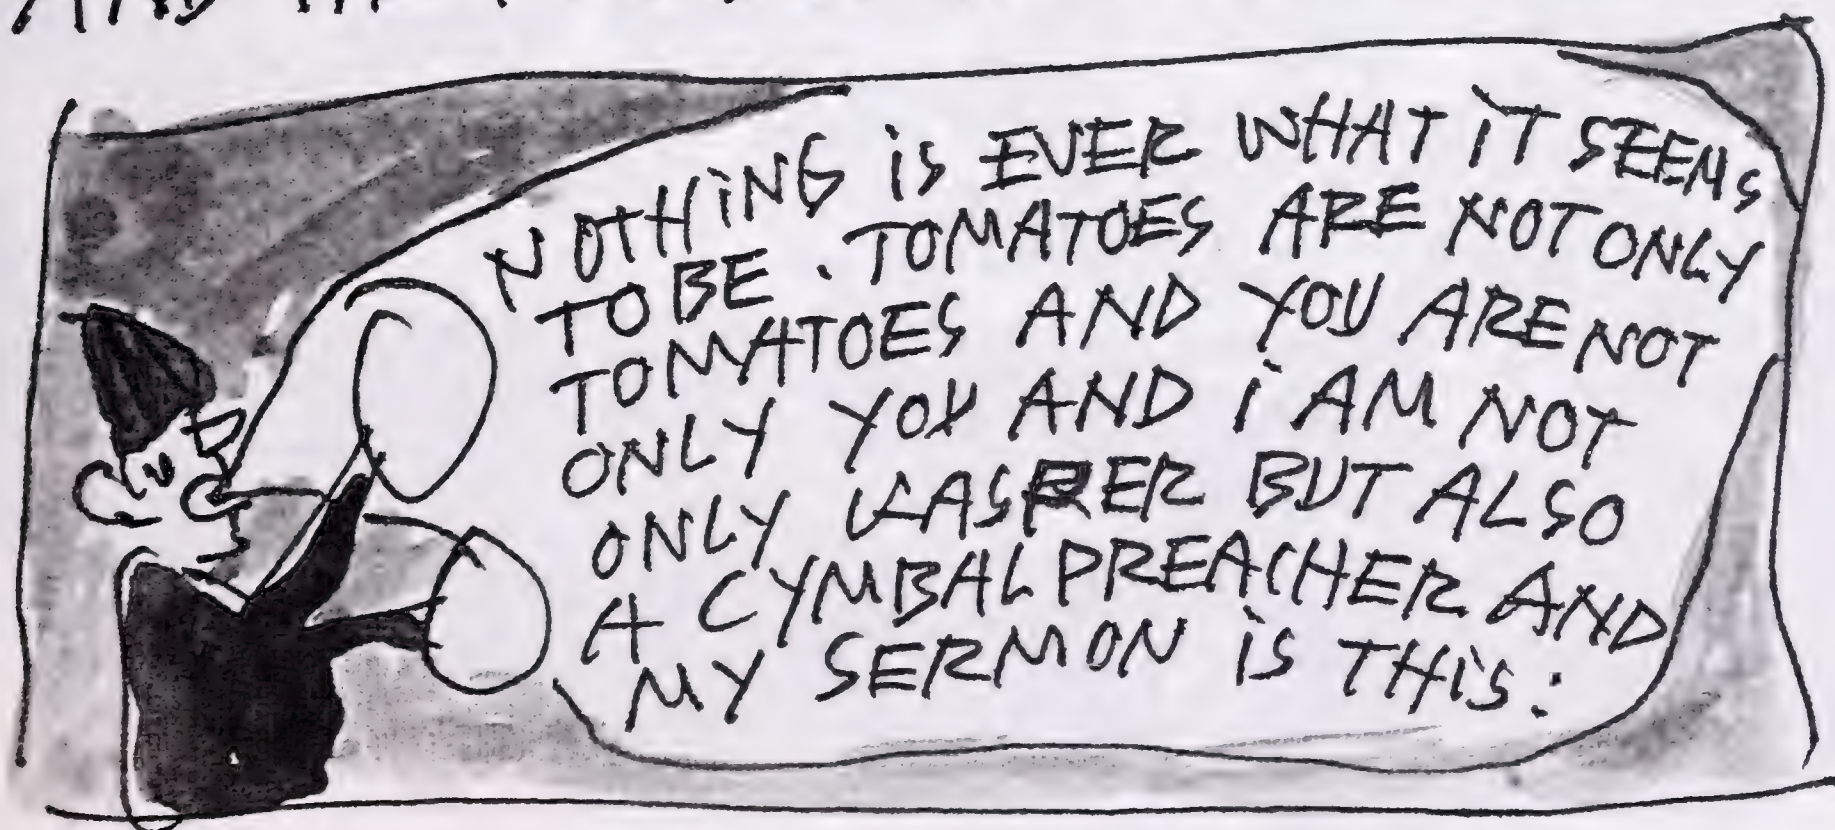 AND
NOTHiNG iS EVER WHAT iT SEEMS
TO BE. TOMATOES ARE NOT ONLY
TOMATOES AND YOU ARE NOT
ONLY YOU AND i AM NOT
ONLY KASPER BUT ALSO
A CYMBAL PREACHER AND
MY SERMON iS THiS: